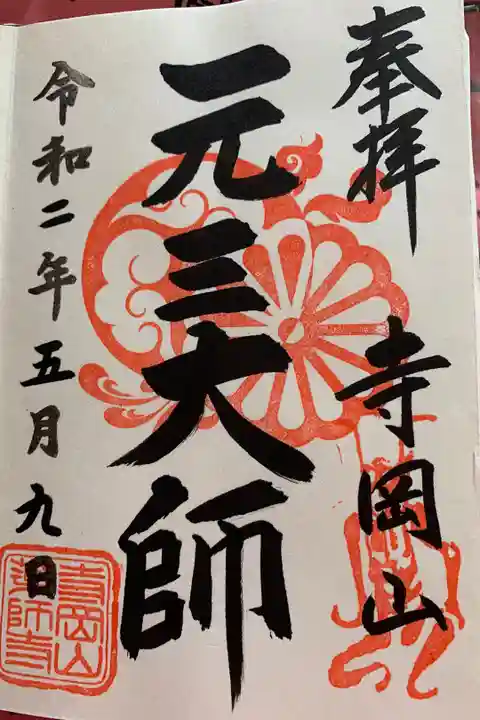 奉拝
寺岡山
元三大師
令和二年五月九日
寺岡山
薬師寺